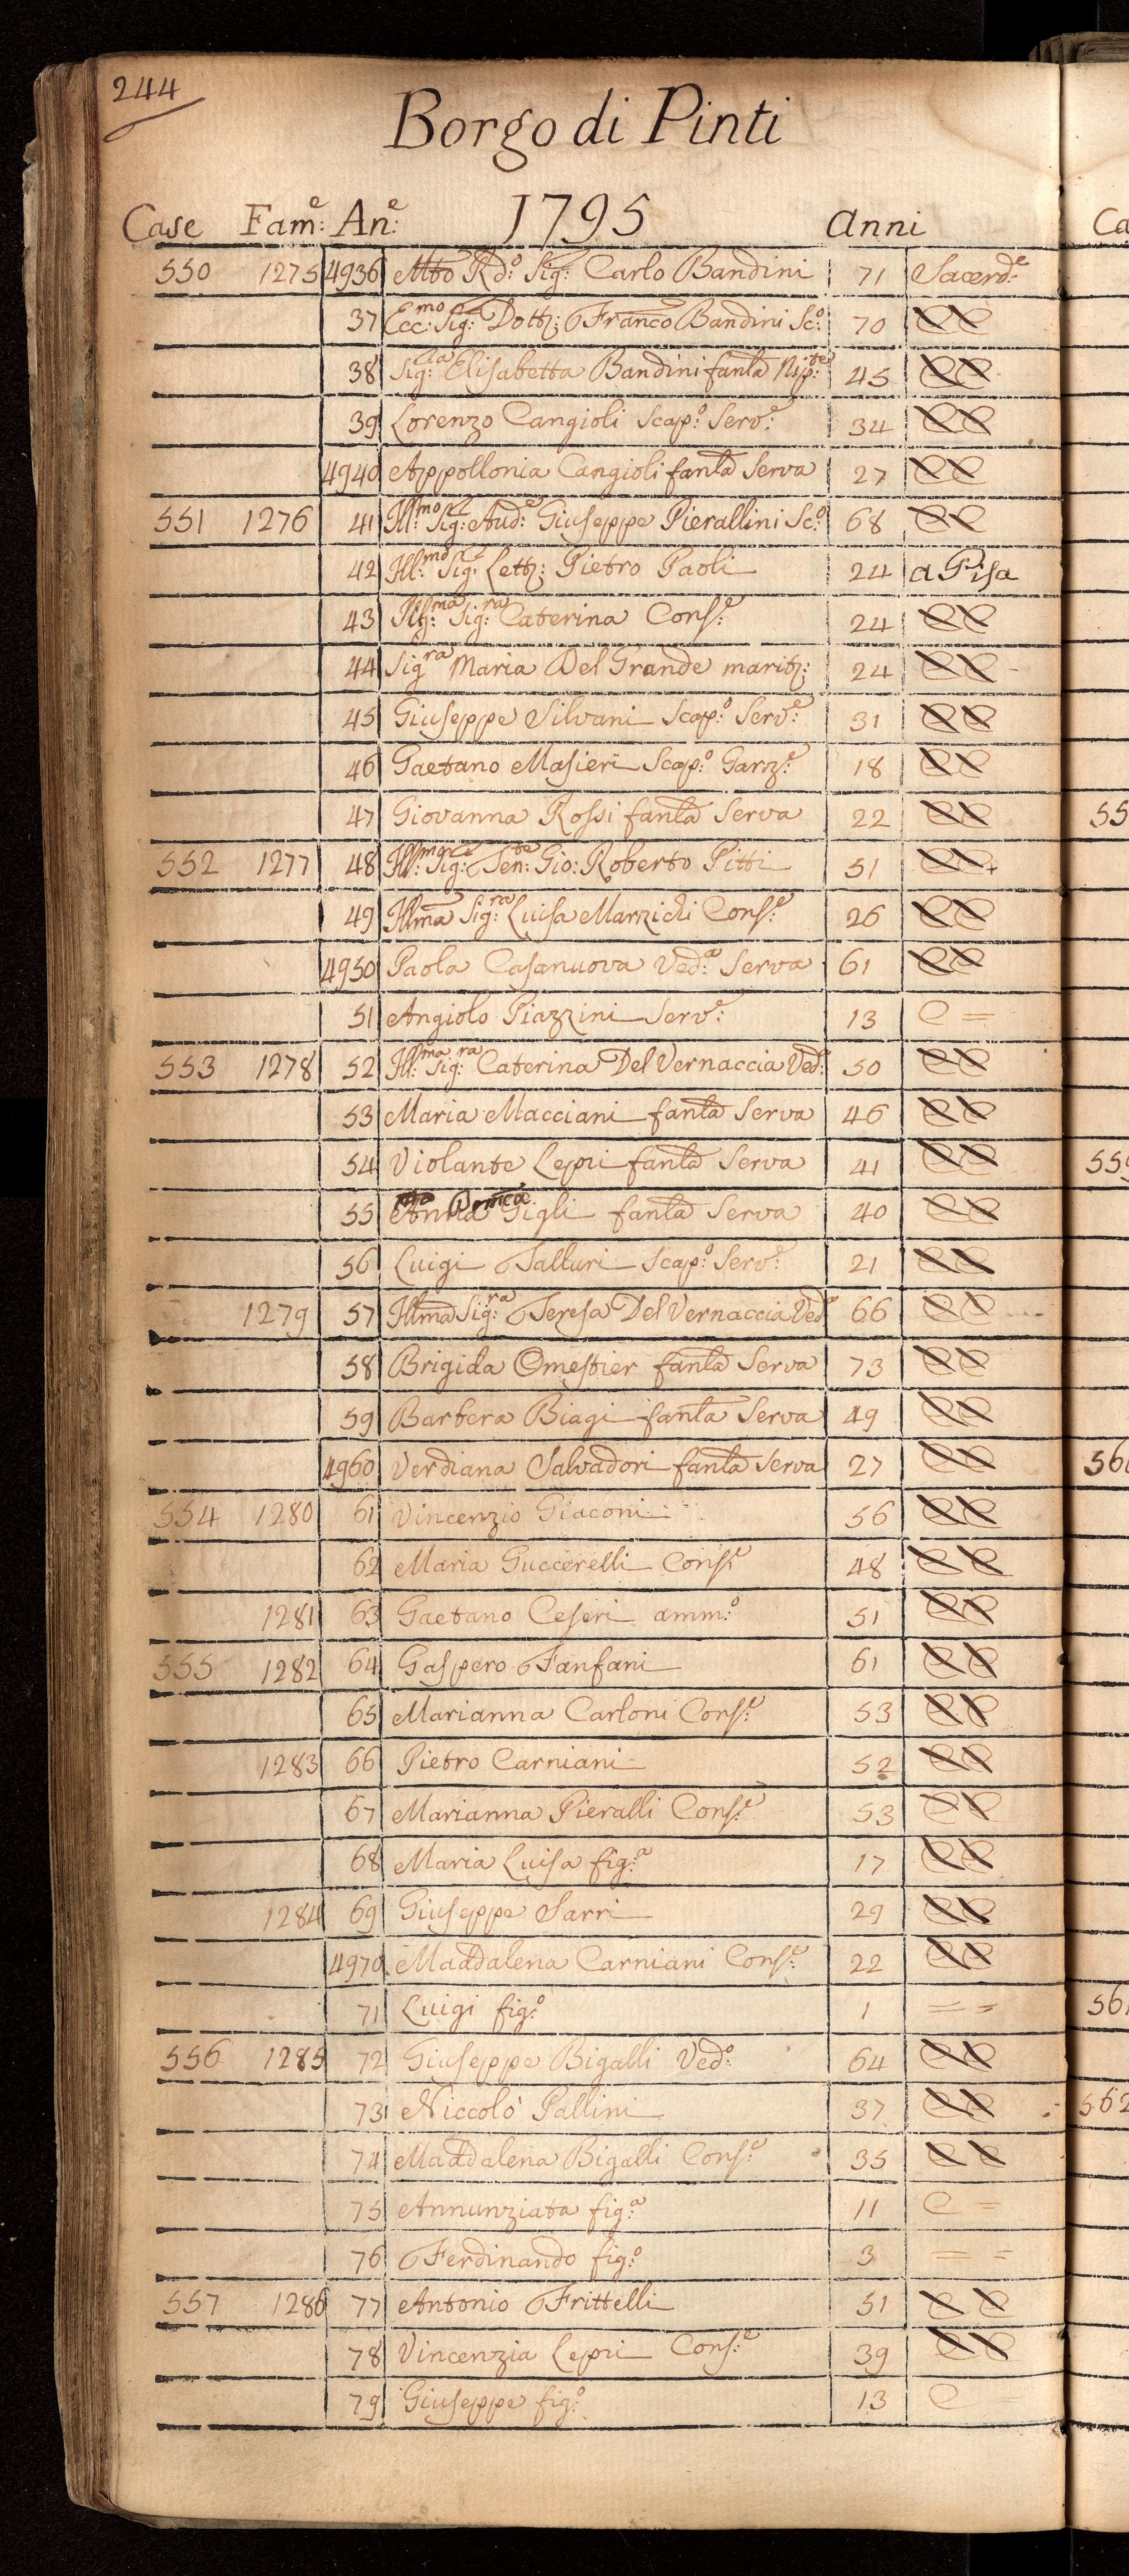 244
Borgo di Pinti
Case Fam:e An:e 1795 Anni
550 1275 4936 Mto Rdo: Sig: Carlo Bandini 71 Sacerd:e
37 Ecc:mo Sig:e Dott: Franco Bandini Sc:o 70 CC
38 Sig:la Elisabetta Bandini fanla Nip:te 45 CC
39 Lorenzo Cangioli Scap:o Serv:e 34 CC
4940 Appollonia Cangioli fanla Serva 27 CC
551 1276 41 Ill:mo Sig:e Aud:e Giuseppe Pierallini Sc:o 68 CC
42 Ill:mo Sig:e Lett: Pietro Paoli 24 a Pisa
43 Ill:ma Sig:ra Caterina Cons:e 24 CC
44 Sigra Maria Del Grande marit: 24 CC
45 Giuseppe Silvani Scap:o Serv:e 31 CC
46 Gaetano Masieri Scap:o Garz:e 18 CC
47 Giovanna Rossi fanla Serva 22 CC
552 1277 48 Ill:mo Sig:e Sen:te Gio: Roberto Pitti 51 CC+
49 Illma Sig:ra Luisa Marzichi Cons:e 26 CC
4950 Paola Casanuova Ved:a Serva 61 CC
51 Angiolo Piazzini Serv:e 13 C =
553 1278 52 Ill:ma Sig:ra Caterina Del Vernaccia Ved:a 50 CC
53 Maria Macciani fanla Serva 46 CC
54 Violante Lepri fanla Serva 41 CC
55 Anna Gigli fanla Serva 40 CC
56 Luigi Talluri Scap:o Serv:e 21 CC
1279 57 Illma Sig:ra Teresa Del Vernaccia Ved:a 66 CC
58 Brigida Omestier fanla Serva 73 CC
59 Barbera Biagi fanla Serva 49 CC
4960 Verdiana Salvadori fanla Serva 27 CC
554 1280 61 Vincenzio Giaconi 56 CC
62 Maria Guccerelli Cons:e 48 CC
1281 63 Gaetano Ceseri amm:o 51 CC
555 1282 64 Gaspero Fanfani 61 CC
65 Marianna Carloni Cons:e 53 CC
1283 66 Pietro Carniani 52 CC
67 Marianna Pieralli Cons:e 53 CC
68 Maria Luisa fig:a 17 CC
1284 69 Giuseppe Sarri 29 CC
4970 Maddalena Carniani Cons:e 22 CC
71 Luigi fig:o 1 = =
556 1285 72 Giuseppe Bigalli Ved:o 64 CC
73 Niccolò Pallini 37 CC
74 Maddalena Bigalli Cons:e 35 CC
75 Annunziata fig:a 11 C =
76 Ferdinando fig:o 3 = =
557 1286 77 Antonio Frittelli 51 CC
78 Vincenzia Lepri Cons:e 39 CC
79 Giuseppe fig:o 13 C =